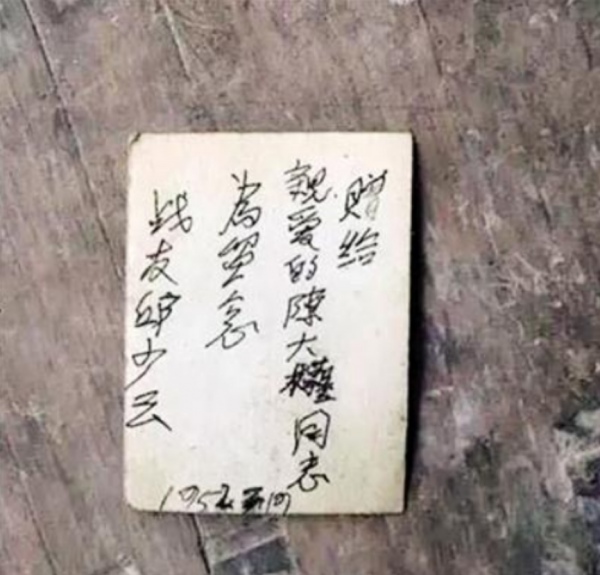 赠给
親爱的陳大同志
為留念
战友邱少云
1952